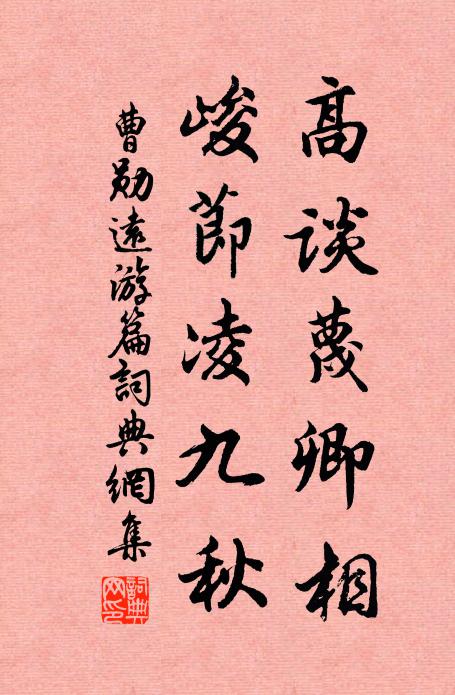 高談蔑卿相
峻節凌九秋
曹勛遠游篇詞典網集
詞典网印